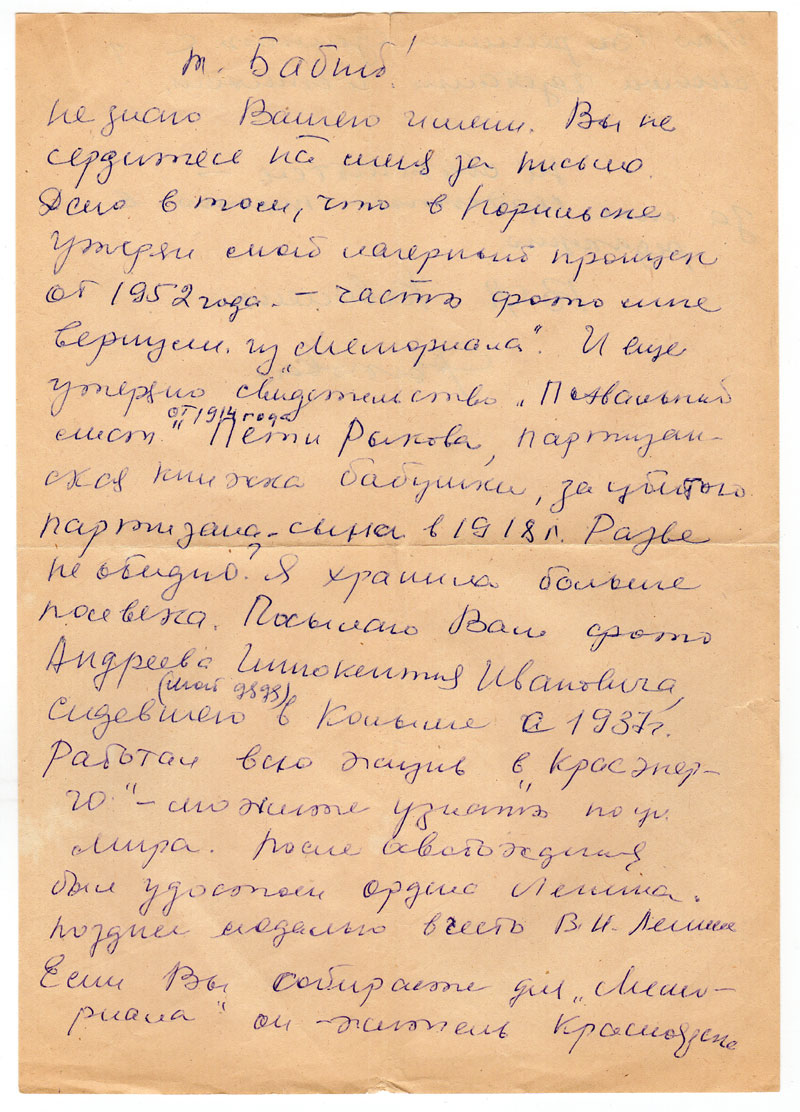 т. Бабий!
не знаю Вашего имени. Вы не
сердитесь на меня за письмо.
Дело в том, что в Норильске
утерян мой лагерный пропуск
от 1952 года. – часть фото мне
вернули из „Мемориала". И еще
утеряно свидетельство „Похвальный
лист" от 1914 года Пети Рыкова, партизан-
ская книжка бабушки, за убитого
партизана-сына в 1918 г. Разве
не обидно? Я хранила больше
полвека. Посылаю Вам фото
Андреева Иннокентия Ивановича,
(мой дядя)
сидевшего в Колыме с 1937 г.
Работал всю жизнь в „Красэнер-
го" – можете узнать по ул.
Мира. После освобождения
был удостоен ордена Ленина.
позднее медалью в честь В.И. Ленина
Если Вы собираете для „Мемо-
риала" он – житель Красноярска